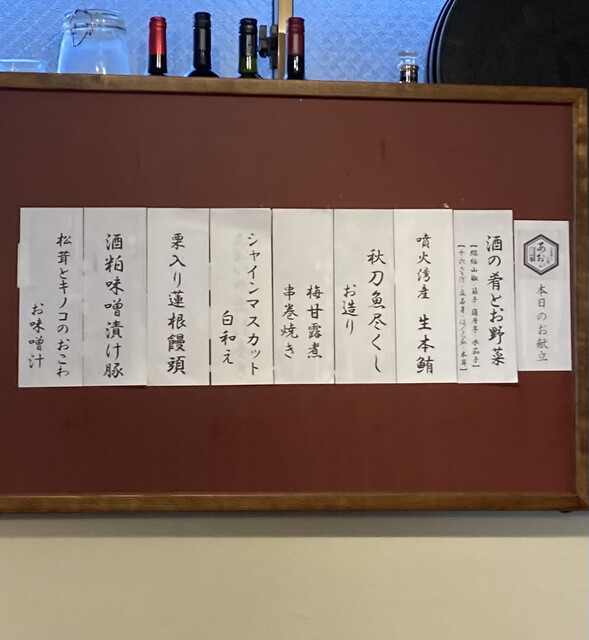 あおい
本日のお献立
酒の肴とお野菜
噴火湾産 生本鮪
秋刀魚尽くし
お造り
梅甘露煮
串巻焼き
シャインマスカット
白和え
栗入り蓮根饅頭
酒粕味噌漬け豚
松茸とキノコのおこわ
お味噌汁